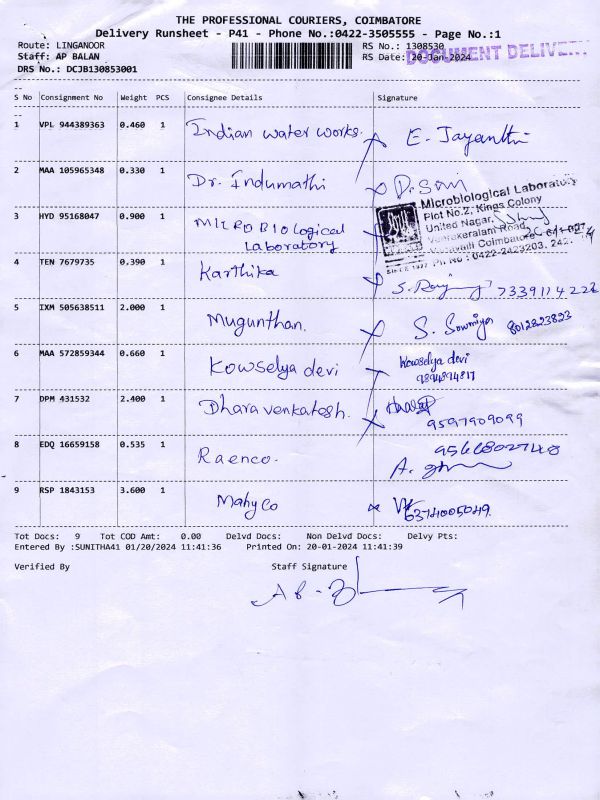 THE PROFESSIONAL COURIERS, COIMBATORE
Delivery Runsheet - P41 - Phone No.:0422-3505555 - Page No.:1
Route: LINGANOOR RS No.: 1308530
Staff: AP BALAN RS Date: 20-Jan-2024 DOCUMENT DELIVE
DRS No.: DCJB130853001
S No Consignment No Weight PCS Consignee Details Signature
1 VPL 944389363 0.460 1 Indian water works. E. Jayanthi
2 MAA 105965348 0.330 1 Dr. Indumathi
3 HYD 95168047 0.900 1 MICROBIOlogical
Laboratory
Microbiological Laboratory
Plot No.2, Kings Colony
United Nagar,
Venkakeralam Road,
Coimbatore
SINCE 1977 Ph No : 0422-2423203, 242
4 TEN 7679735 0.390 1 Karthika
5 IXM 505638511 2.000 1 Mugunthan. S. Sowmiya 8012823823
6 MAA 572859344 0.660 1 Kowselya devi Kowselya devi
9894894817
7 DPM 431532 2.400 1 Dharavenkatesh.
9597909099
8 EDQ 16659158 0.535 1 Raenco.
9 RSP 1843153 3.600 1 MahyCo 6374005049.
Tot Docs: 9 Tot COD Amt: 0.00 Delvd Docs: Non Delvd Docs: Delvy Pts:
Entered By :SUNITHA41 01/20/2024 11:41:36 Printed On: 20-01-2024 11:41:39
Verified By Staff Signature